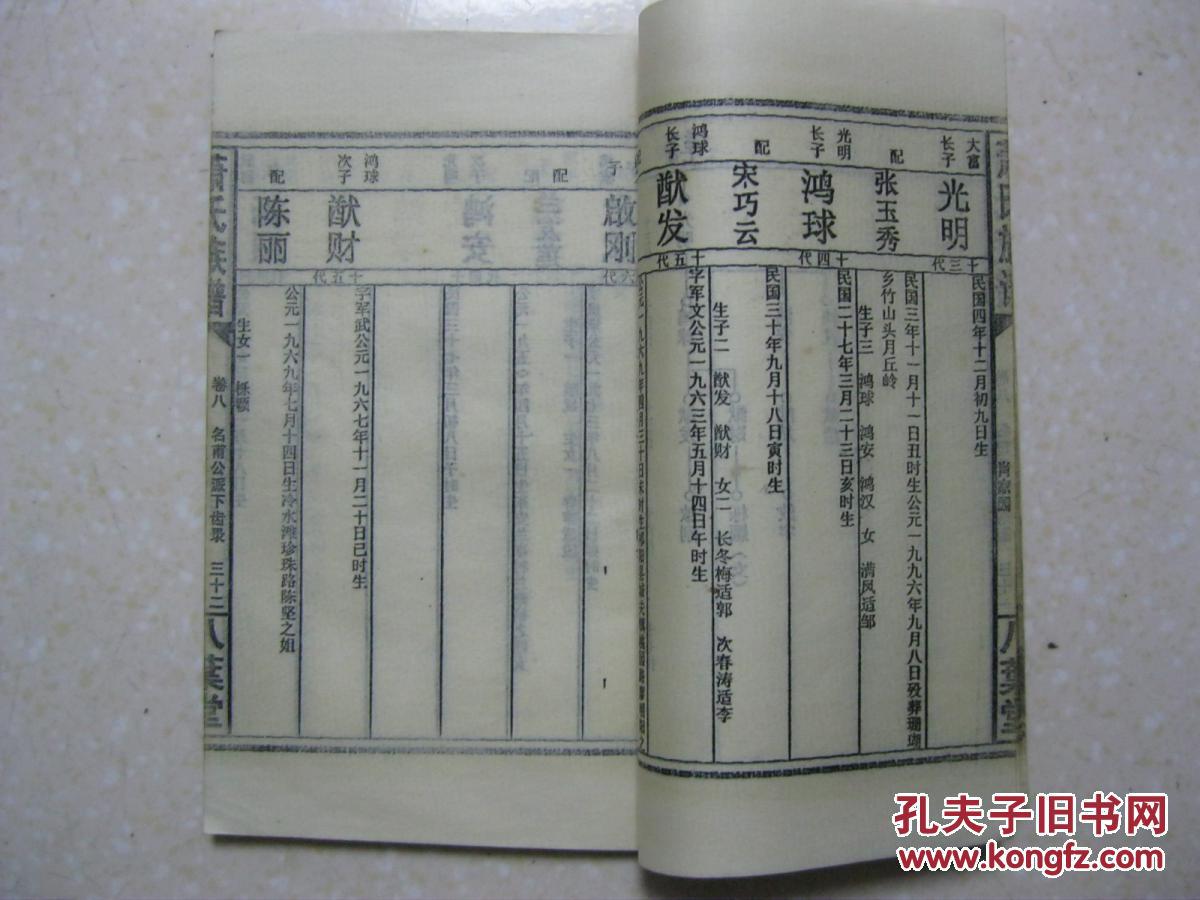 大富
长子
光明
十三代
民国四年十二月初九日生
配
张玉秀
民国三年十一月十一日丑时生公元一九九六年九月八日殁葬珊瑚
乡竹山头月丘岭
生子三 鸿球 鸿安 鸿汉 女 满凤适邹
光明
长子
鸿球
十四代
民国二十七年三月二十三日亥时生
配
宋巧云
民国三十年九月十八日寅时生
生子二 猷发 猷财 女二 长冬梅适郭 次春涛适李
鸿球
长子
猷发
十五代
字军文公元一九六三年五月十四日午时生
子
啟刚
六代
鸿球
次子
猷财
十五代
字军武公元一九六七年十一月二十日巳时生
配
陈丽
公元一九六九年七月十四日生冷水滩珍珠路陈坚之姐
生女一
萧氏族谱
卷八 名甫公派下齿录 三十二
八葉堂
八葉堂
孔夫子旧书网
www.kongfz.com